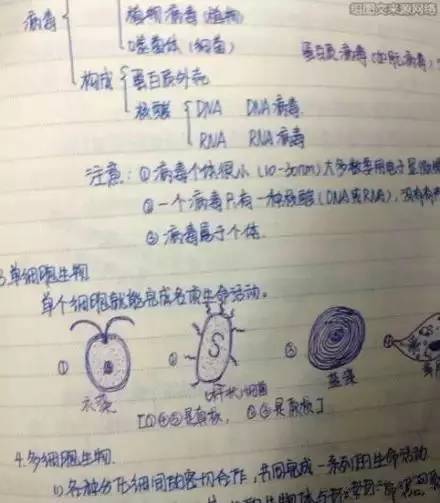 组图文来源网络
病毒
植物病毒(植物)
噬菌体(细菌)
蛋白质病毒
构成
蛋白质外壳
核酸
DNA DNA病毒
RNA RNA病毒
注意:①病毒个体很小(10-30nm)大多数要用电子显微
②一个病毒只有一种核酸(DNA或RNA),没有
③病毒属于个体.
3.单细胞生物
单个细胞就能完成各项生命活动。
① 衣藻
② 杆状细菌
③ 蓝藻
④
4.多细胞生物.
1)各种分化细胞间的密切合作,共同完成一系列的生命活动